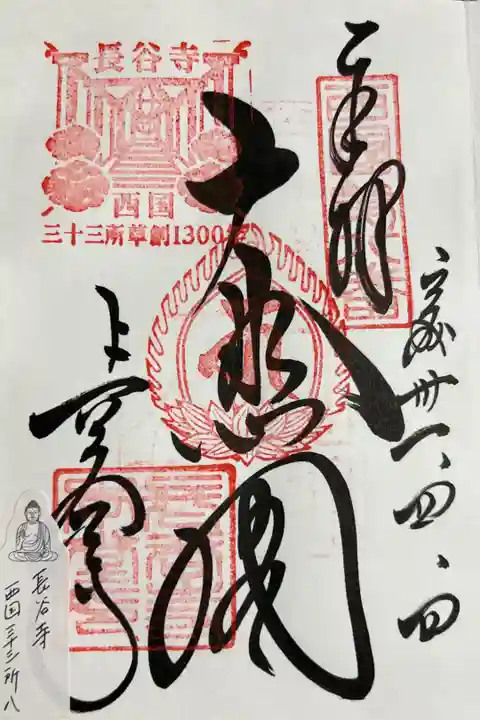 奉拝
平成卅一、四、四
大悲閣
長谷寺
長谷寺
西国
三十三所草創1300年
長谷寺
西国三十三所八